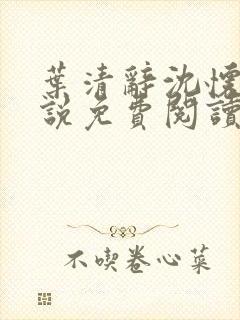 葉清辭沈懷
說免費閱讀
不喫卷心菜